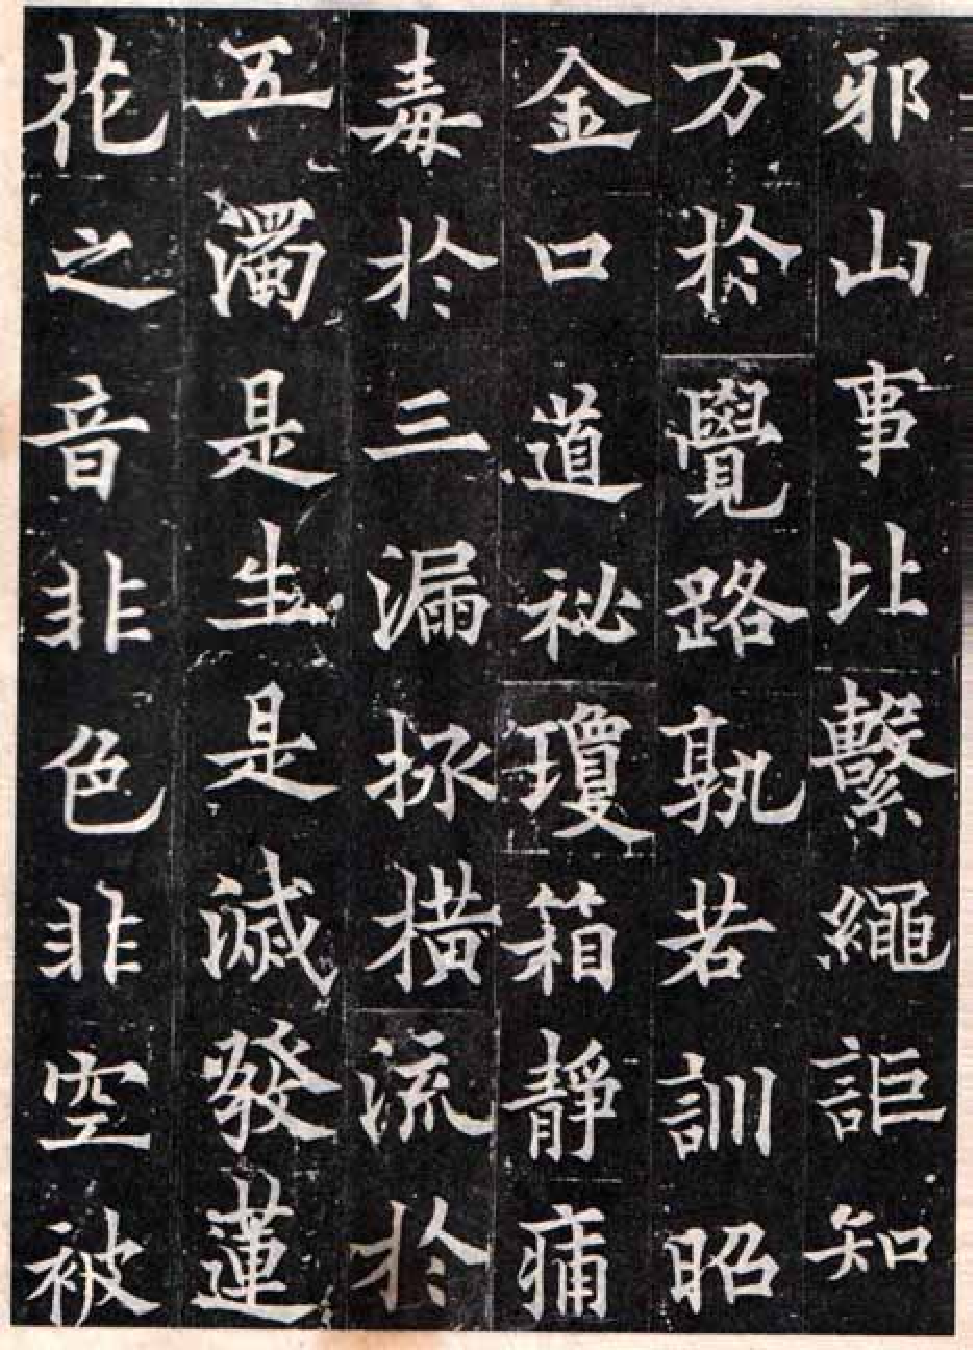 邪山事比繫繩詎知
方於覺路孰若訓昭
金口道祕瓊箱靜痡
毒於三漏拯橫流於
五濁是生是滅發蓮
花之音非色非空被